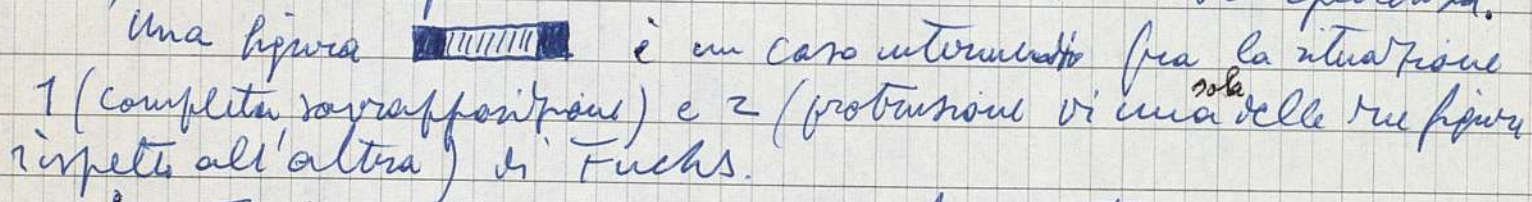 Una figura è un caso intermedio fra la situazione
1 (completa sovrapposizione) e 2 (protrusione di una sola delle due figure
rispetto all'altra) di Fuchs.